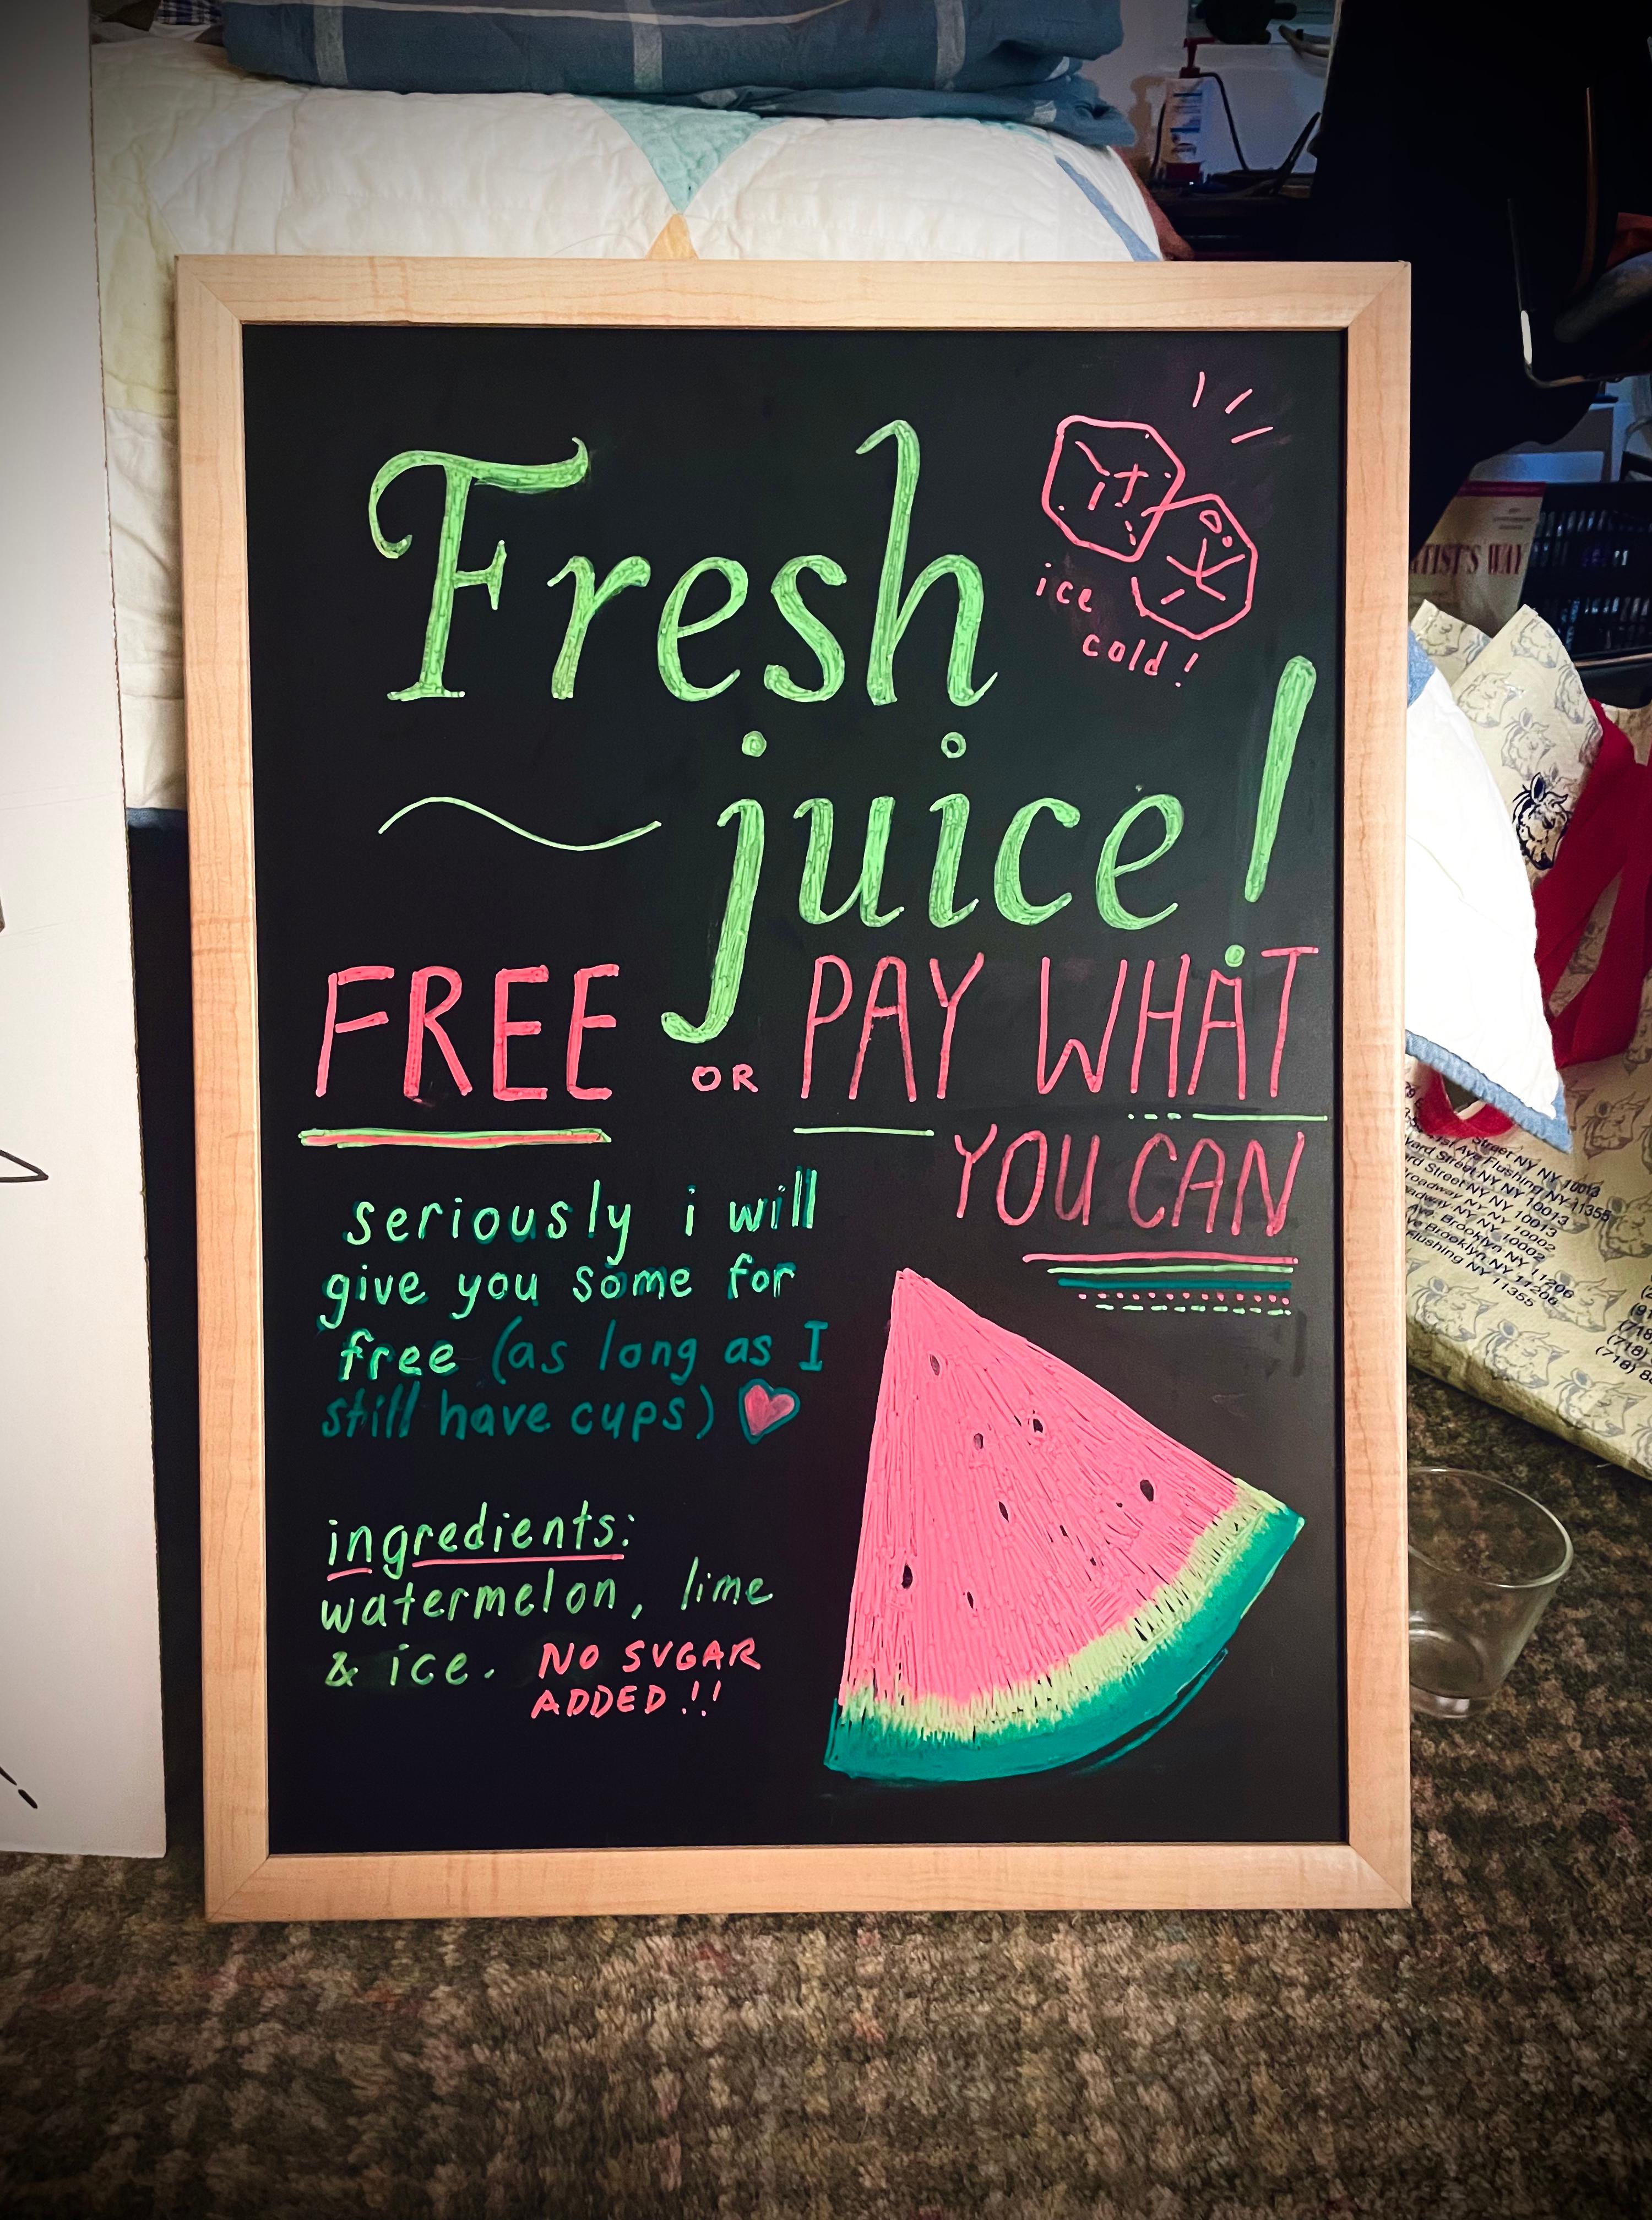 Fresh
ice
cold!
juice!
FREE OR PAY WHAT
YOU CAN
seriously i will
give you some for
free (as long as I
still have cups)
ingredients:
watermelon, lime
& ice. NO SUGAR
ADDED!!
TIST'S WAY
Street NY NY 10013
1st Ave Flushing NY 11355
vard Street NY NY 10013
rd Street NY NY 10013
roadway NY NY 10002
adway NY NY 10002
Ave. Brooklyn NY 11206
ve Brooklyn NY 11206
lushing NY 11355
(718)
(718)